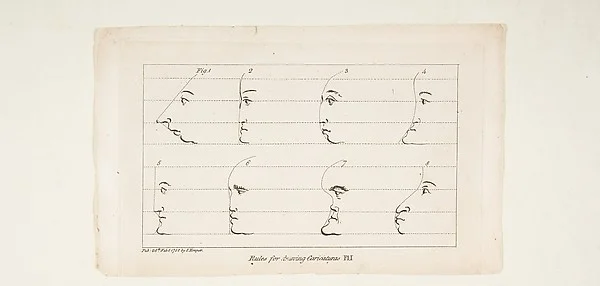 Fig. 1 2 3 4
5 6 7 8
Pub. 28th Feb. 1788 by S. Hooper
Rules for drawing Caricaturas Pl. I